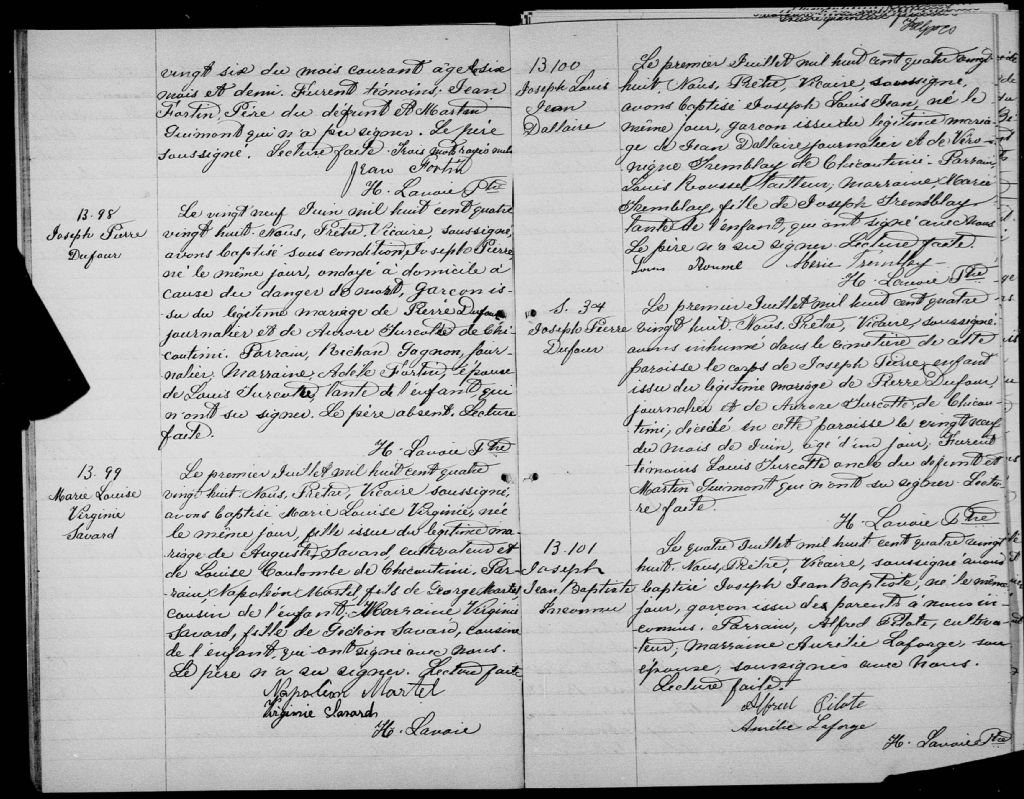 vingt six du mois courant âgé de six
mois et demi. Furent témoins: Jean
Fortin, Père du défunt & Martin
Guimont qui n'a pu signer. Le père
soussigné. Lecture faite. Trois mots rayés nuls
Jean Fortin
H. Lavoie Ptre
B. 98
Joseph Pierre
Dufour
Le vingt neuf Juin mil huit cent quatre
vingt huit. Nous, Prêtre, Vicaire, soussigné,
avons baptisé sous condition, Joseph Pierre
né le même jour, ondoyé à domicile à
cause du danger de mort, garçon is-
su du légitime mariage de Pierre Dufour
journalier et de Aurore Turcotte de Chi-
coutimi. Parrain, Richard Gagnon, jour-
nalier, Marraine Adèle Fortin, épouse
de Louis Turcotte, tante de l'enfant, qui
n'ont su signer. Le père absent. Lecture
faite.
H. Lavoie Ptre
B. 99
Marie Louise
Virginie
Savard
Le premier Juillet mil huit cent quatre
vingt huit Nous, Prêtre, Vicaire soussigné,
avons baptisé Marie Louise Virginie, née
le même jour, fille issue du légitime ma-
riage de Auguste Savard cultivateur et
de Louise Coulombe de Chicoutimi. Par-
rain Napoléon Martel, fils de George Martel
cousin de l'enfant, Marraine Virginie
Savard, fille de Gédéon Savard, cousine
de l'enfant, qui ont signé avec nous.
Le père n'a su signer. Lecture faite
Napoléon Martel
Virginie Savard
H. Lavoie
B. 100
Joseph Louis
Jean
Dallaire
Le premier Juillet mil huit cent quatre vingt
huit. Nous, Prêtre, Vicaire, soussigné,
avons baptisé Joseph Louis Jean, né le
même jour, garçon issu du légitime maria-
ge de Jean Dallaire journalier et de Véro-
nique Tremblay de Chicoutimi. Parrain
Louis Roussel, Marraine, Marie
Tremblay, fille de Joseph Tremblay
tante de l'enfant, qui ont signé avec Nous
Le père n'a su signer. Lecture faite.
Marie Tremblay
H. Lavoie Ptre
S. 34
Joseph Pierre
Dufour
Le premier Juillet mil huit cent quatre
vingt huit. Nous, Prêtre, Vicaire, soussigné,
avons inhumé dans le cimetière de cette
paroisse le corps de Joseph Pierre, enfant
issu du légitime mariage de Pierre Dufour
journalier et de Aurore Turcotte, de Chicou-
timi, décédé en cette paroisse le vingt neuf
du mois de Juin, âgé d'un jour; Furent
témoins Louis Turcotte oncle du défunt et
Martin Guimont qui n'ont su signer. Lectu-
re faite.
H. Lavoie Ptre
B. 101
Joseph
Jean Baptiste
Inconnu
Le quatre Juillet mil huit cent quatre vingt
huit. Nous, Prêtre, Vicaire, soussigné avons
baptisé Joseph Jean Baptiste, né le même
jour, garçon issu des parents à nous in-
connus. Parrain, Alfred Pilote, cultiva-
teur, Marraine Aurélie Laforge son
épouse, soussignés avec Nous.
Lecture faite.
Alfred Pilote
Aurélie Laforge
H. Lavoie Ptre